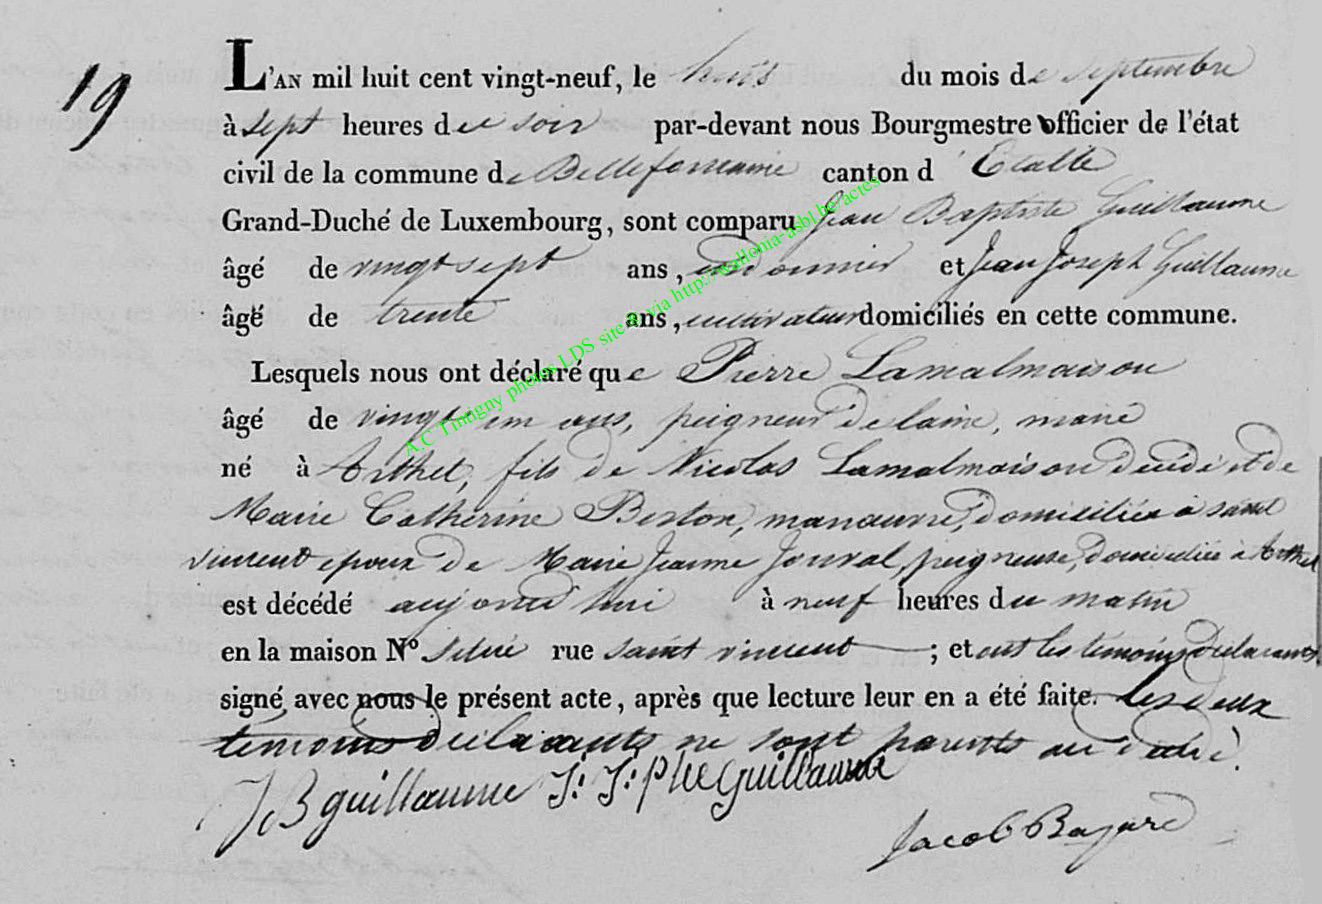 19
L'AN mil huit cent vingt-neuf, le huis du mois de septembre
à sept heures du soir par-devant nous Bourgmestre officier de l'état
civil de la commune de Bellefontaine canton d'Etalle
Grand-Duché de Luxembourg, sont comparu Jean Baptiste Guillaume
âgé de vingt sept ans, cordonnier et Jean Joseph Guillaume
âgé de trente ans, cultivateur domiciliés en cette commune.
Lesquels nous ont déclaré que Pierre Lamalmaison
âgé de vingt un ans, peigneur de laine, marié
né à Arthet, fils de Nicolas Lamalmaison décédé et de
Marie Catherine Berton, manœuvre, domiciliée à saint
vincent epoux de Marie Jeanne Jonval, peigneuse, domiciliée à Arthet
est décédé aujourd'hui à neuf heures du matin
en la maison N° située rue saint vincent ; et ont les témoins déclarants
signé avec nous le présent acte, après que lecture leur en a été faite. Les deux
témoins déclarants ne sont parents au décédé.
JB guillaume J: J:ph Guillaume
Jacob Bazard
A.C Tintigny photos LDS site & via http://wallonia-asbl.be/actes